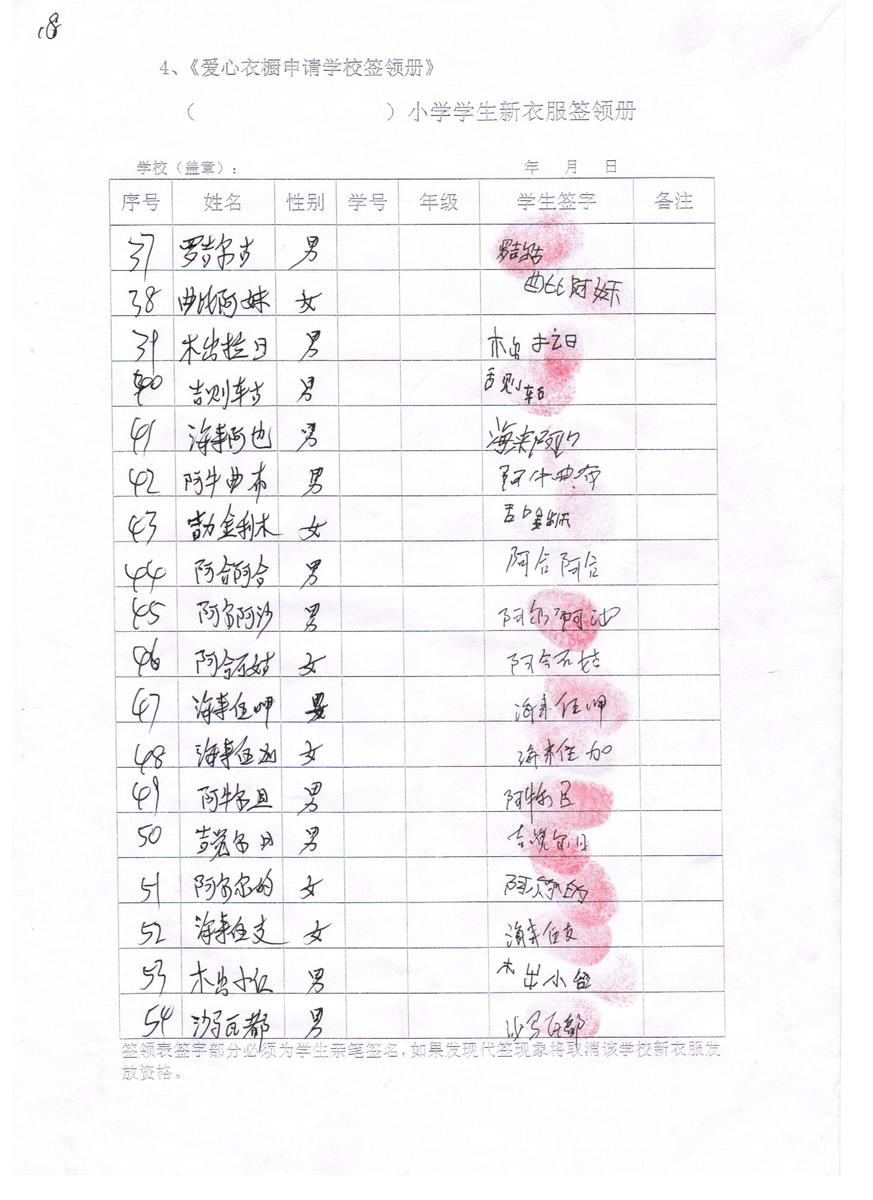 18
4、《爱心衣橱申请学校签领册》
（ ）小学学生新衣服签领册
学校（盖章）： 年 月 日
序号 姓名 性别 学号 年级 学生签字 备注
37 罗吉尔古 男
38 曲比阿妹 女 曲比阿妹
39 木出拉日 男 木出拉日
40 吉则车古 男 吉则车古
41 海来阿也 男 海来阿
42 阿牛曲布 男 阿牛曲布
43 金利木 女
44 阿合阿合 男 阿合阿合
45 阿尔阿沙 男 阿尔阿沙
46 阿合石姑 女 阿合石姑
47 海来伍呷 男 海来伍呷
48 海来伍加 女 海来伍加
49 阿牛尔且 男 阿牛尔且
50 吉觉尔日 男 吉觉尔日
51 阿尔尔的 女 阿尔尔的
52 海来伍支 女 海来伍支
53 木出小 男 木出小
54 沙马瓦都 男 沙马瓦都
签领表签字部分必须为学生亲笔签名，如果发现代签现象将取消该学校新衣服发
放资格。